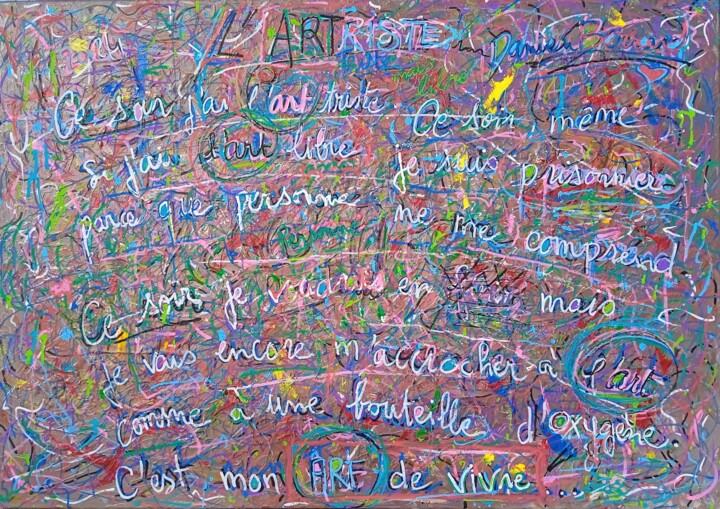 L'ARTRISTE
Ce soir j'ai l'art triste. Ce soir, même
si j'ai l'art libre je suis prisonnier
parce que personne ne me comprend
Personne
Ce soir je voudrais en mais
je vais encore m'accrocher à l'art
comme à une bouteille d'oxygène.
C'est mon ART de vivre...